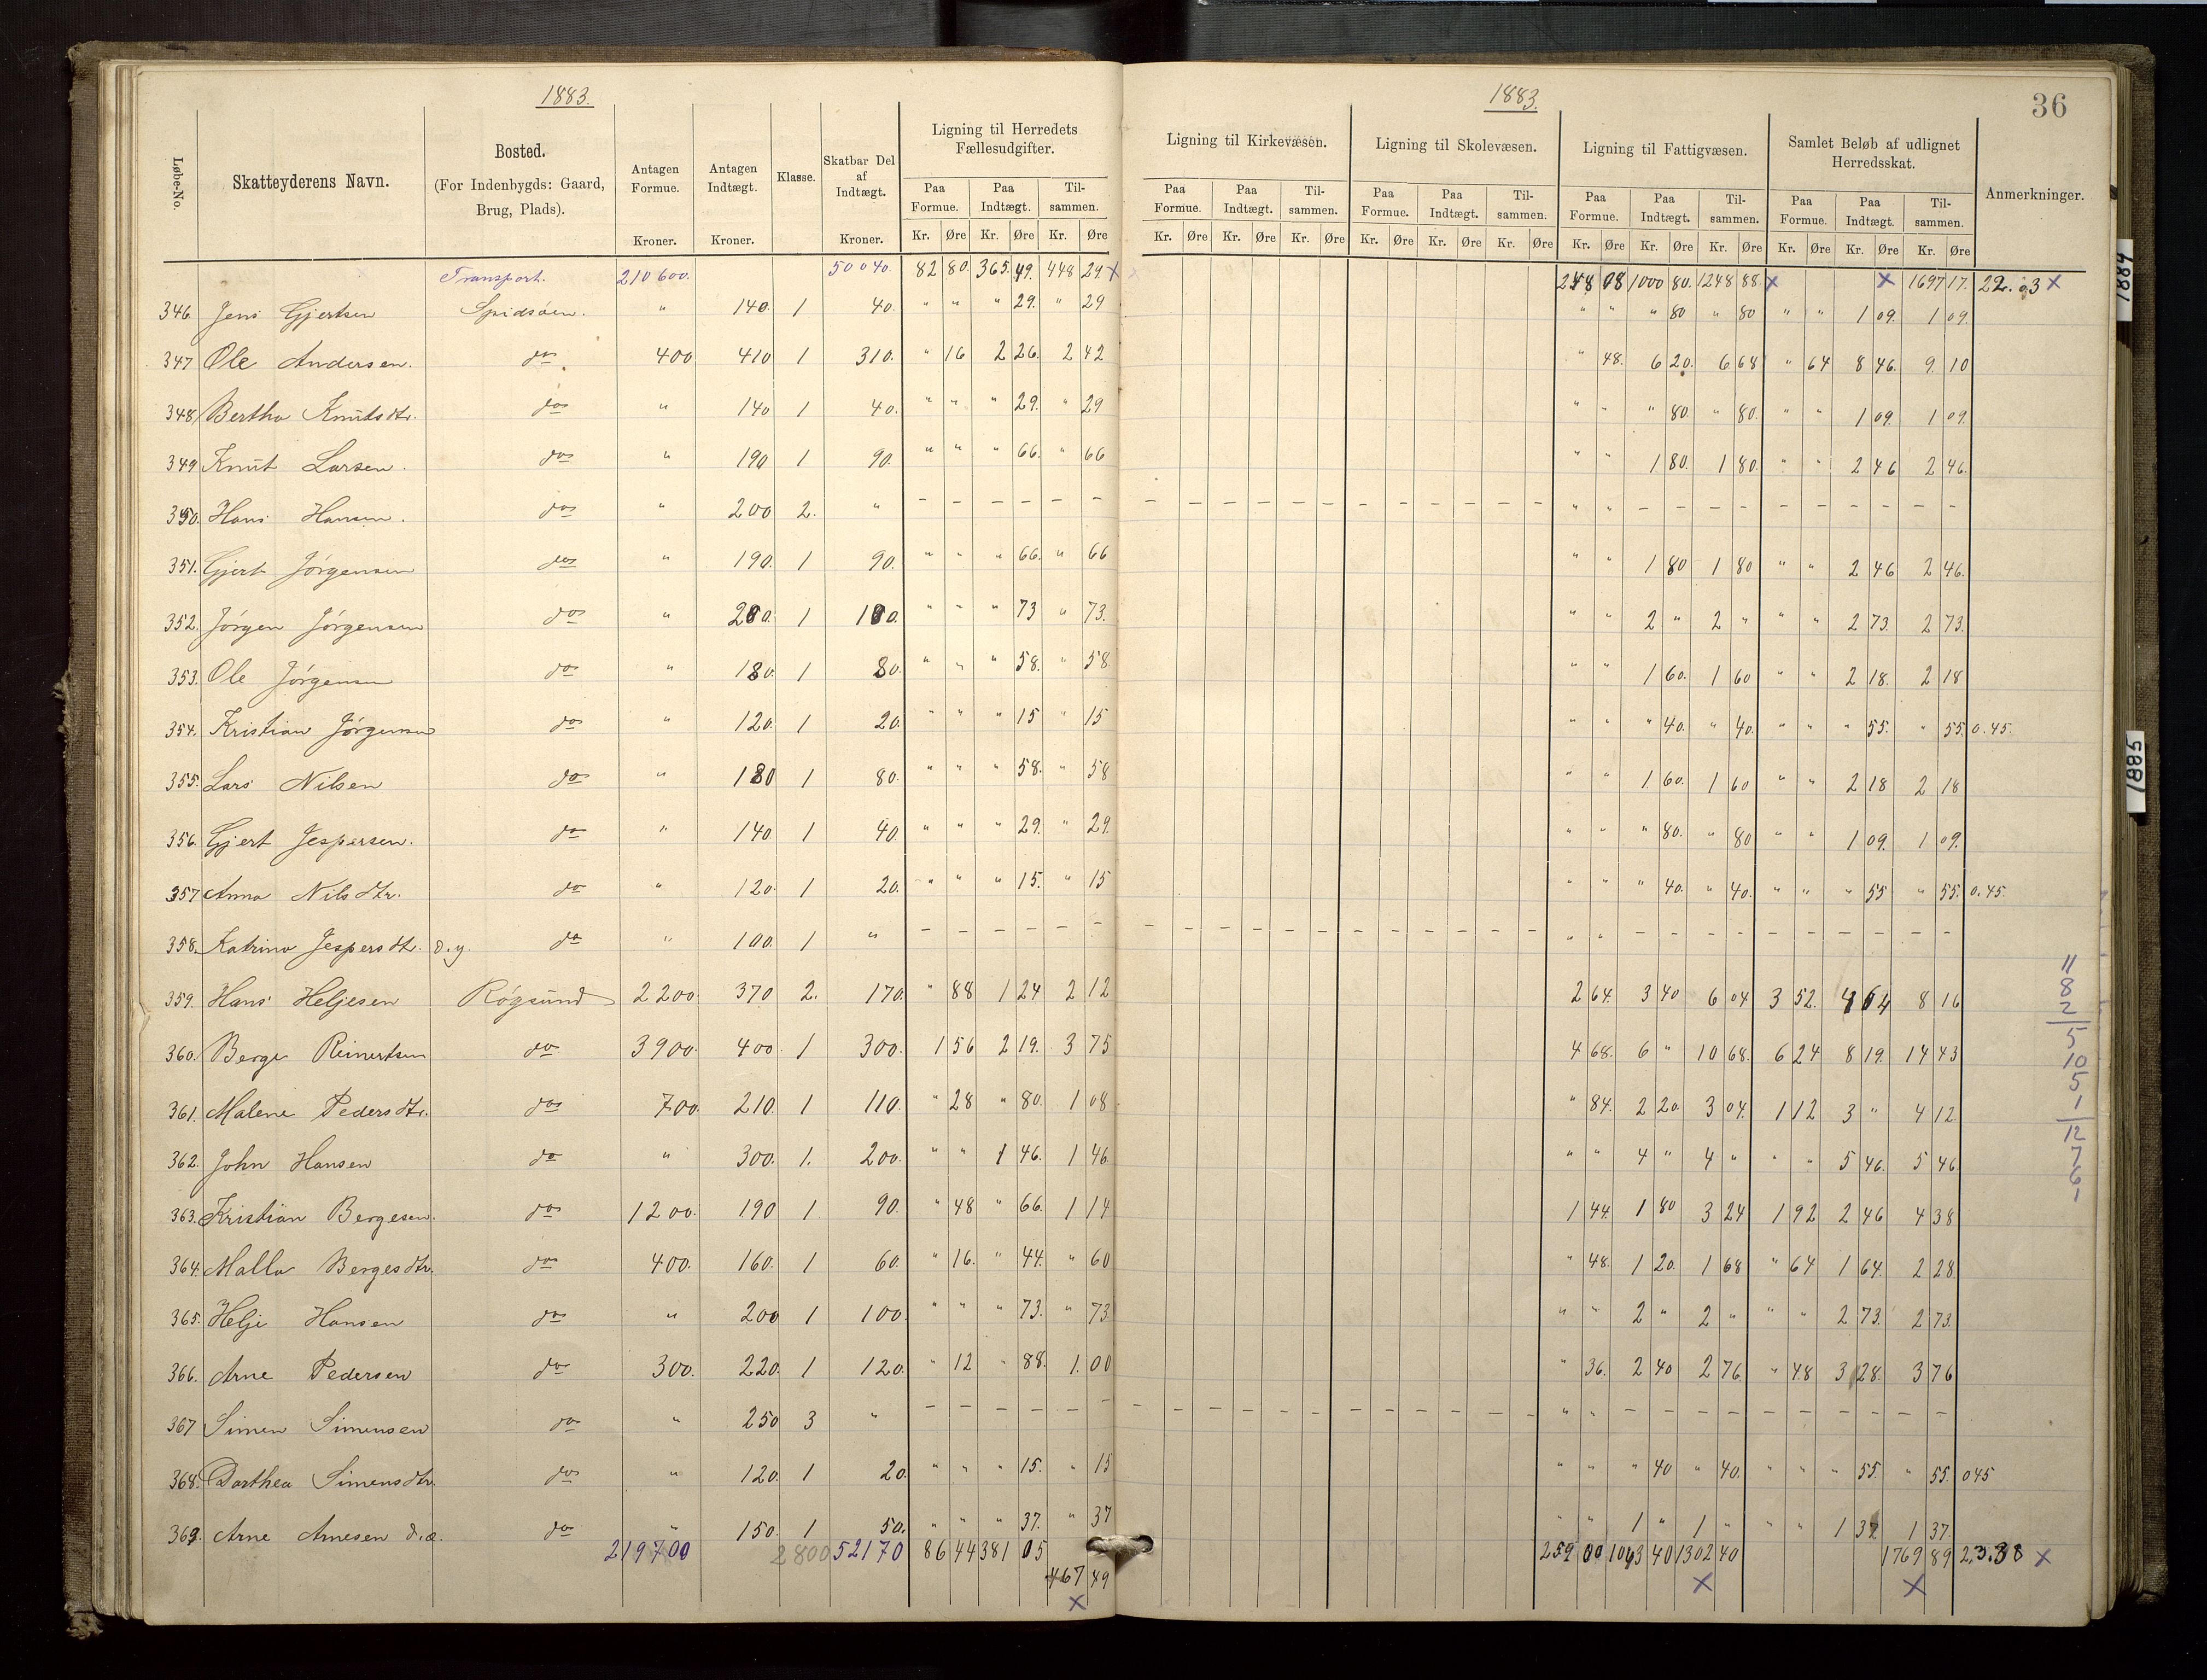 1883.
1883.
36
Løbe-No.
Skatteyderens Navn.
Bosted.
(For Indenbygds: Gaard, Brug, Plads).
Antagen Formue.
Kroner.
Antagen Indtægt.
Kroner.
Klasse.
Skatbar Del af Indtægt.
Kroner.
Ligning til Herredets Fællesudgifter.
Paa Formue. Paa Indtægt. Tilsammen.
Kr. Øre Kr. Øre Kr. Øre
Ligning til Kirkevæsen.
Paa Formue. Paa Indtægt. Tilsammen.
Kr. Øre Kr. Øre Kr. Øre
Ligning til Skolevæsen.
Paa Formue. Paa Indtægt. Tilsammen.
Kr. Øre Kr. Øre Kr. Øre
Ligning til Fattigvæsen.
Paa Formue. Paa Indtægt. Tilsammen.
Kr. Øre Kr. Øre Kr. Øre
Samlet Beløb af udlignet Herredsskat.
Paa Formue. Paa Indtægt. Tilsammen.
Kr. Øre Kr. Øre Kr. Øre
Anmerkninger.
Transport. 210600. 50040. 82 80. 365. 49. 448 29. x 248 08 1000 80. 1248 88. x x 1697 17. 22.03 x
346. Jens Gjertsen Spidsøen. " 140. 1 40. " " " 29. " 29 " " " 80 " 80 " " 1 09. 1 09.
347 Ole Andersen. do 400 410 1 310. " 16 2 26. 2 42 " 48. 6 20. 6 68 " 64 8 46. 9. 10
348. Bertha Knutsdtr. do " 140 1 40. " " " 29. " 29 " " " 80. " 80. " " 1 09. 1 09.
349 Knut Larsen. do " 190 1 90. " " " 66. " 66 " " 1 80. 1 80. " " 2 46 2 46.
350. Hans Hansen. do " 200 2. " – – – – – – – – – – – – – – – – – – " " – – – – – – – – – –
351. Gjert Jørgensen do " 190. 1 90. " " " 66. " 66 " " 1 80 1 80 " " 2 46 2 46.
352. Jørgen Jørgensen do " 200. 1 100. " " " 73 " 73. " " 2 " 2 " " " 2 73. 2 73.
353. Ole Jørgensen do " 180. 1 80. " " " 58. " 58 " " 1 60. 1 60 " " 2 18. 2 18
354. Kristian Jørgensen do " 120. 1 20. " " " 15 " 15 " " " 40. " 40. " " " 55. " 55. 0.45.
355. Lars Nilsen do " 180 1 80. " " " 58. " 58 " " 1. 60. 1 60 " " 2 18 2 18
356. Gjert Jespersen. do " 140 1 40. " " " 29. " 29. " " " 80. " 80 " " 1 09. 1 09.
357 Anna Nilsdtr. do " 120. 1 20. " " " 15. " 15 " " " 40. " 40. " " " 55 " 55. 0.45.
358. Katrina Jespersdtr. d.y. do " 100. 1 " – – – – – – – – – – – – – – – – – – " " – – – – – – – – – –
359. Hans Heljesen Røgsund 2200 370 2. 170. " 88 1 24 2 12 2 64. 3 40 6 04 3 52. 4 64 8 16
360. Berge Reinertsen do 3900. 400. 1 300. 1 56 2 19. 3 75 4 68. 6 " 10 68. 6 24 8 19. 14 43
361. Malene Pedersdtr. do 700. 210. 1 110. " 28 " 80. 1 08 " 84. 2 20. 3 04. 1 12 3 " 4 12.
362. John Hansen do " 300. 1. 200. " " 1 46. 1 46 " " 4 " 4 " " " 5 46. 5 46.
363. Kristian Bergesen. do 1200. 190 1 90. " 48 " 66. 1 14 1 44. 1 80 3 24 1 92 2 46 4 38
364. Malla Bergesdtr. do 400. 160. 1 60. " 16. " 44. " 60 " 48. 1 20. 1 68 " 64 1 64. 2 28
365. Helje Hansen do " 200 1 100. " " " 73. " 73 " " 2 " 2 " " " 2 73. 2 73.
366. Arne Pedersen do 300. 220. 1 120. " 12 " 88. 1. 00 " 36. 2 40 2 76. " 48 3 28. 3 76
367 Simen Simensen do " 250 3 " – – – – – – – – – – – – – – – – – – " " – – – – – – – – – –
368. Dorthea Simensdtr. do " 120. 1 20. " " " 15. " 15 " " " 40 " 40. " " " 55. " 55. 045
369. Arne Arnesen d.æ. do " 150. 1 50. " " " 37. " 37 " " 1 " 1 " " " 1 37 1 37.
219700 2800 52170 86 44 381 05 259 00 1043 40 1302 40 1769 89 23.38 x
467 49
x x x
11
8
2
5
10
5
1
12
7
6
1
1884
1885